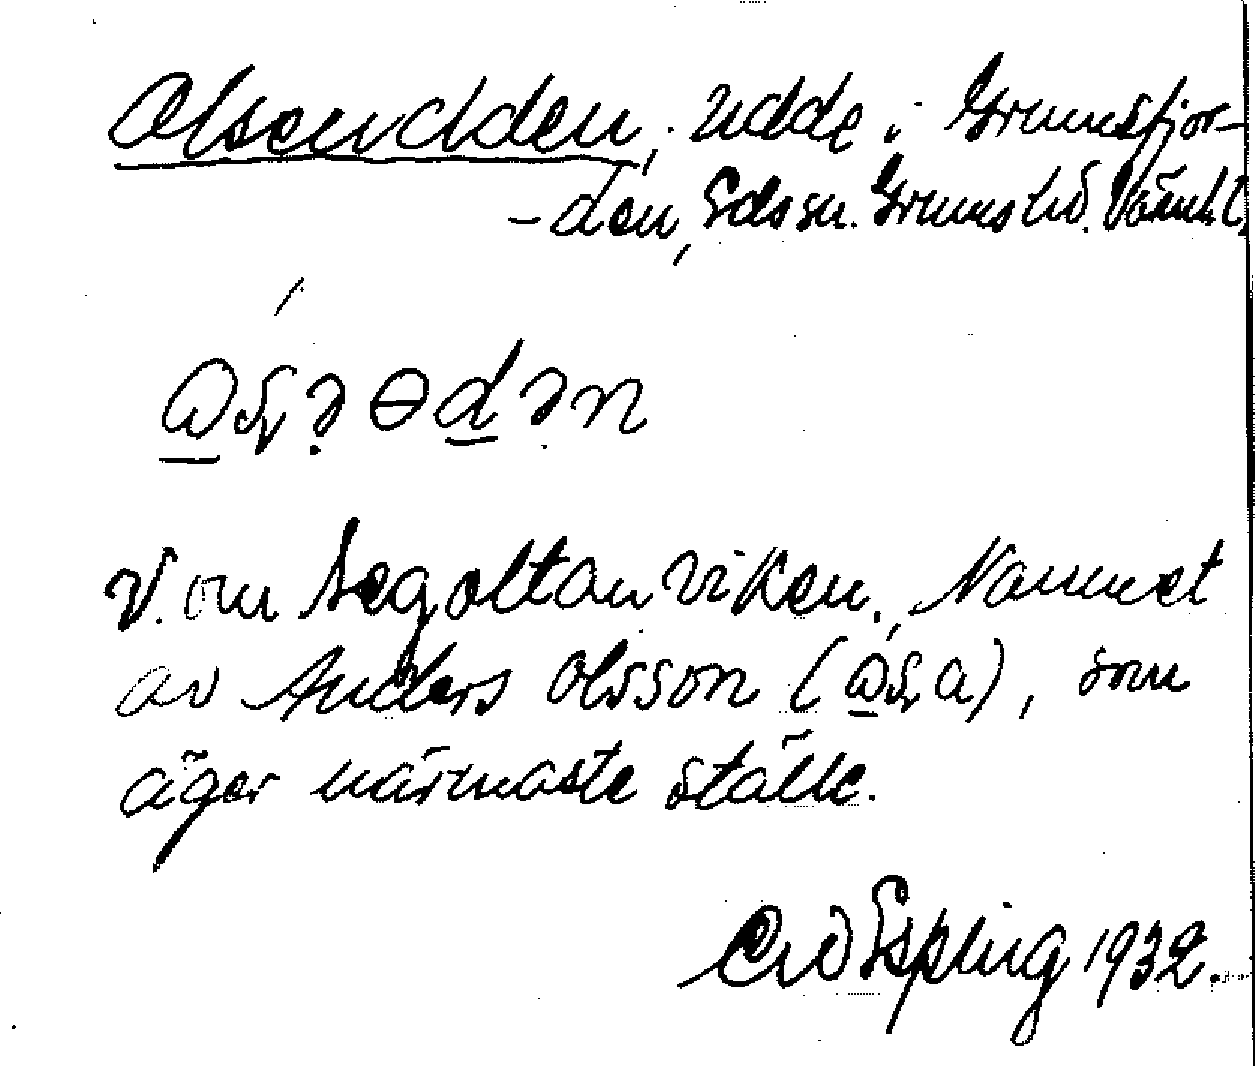 Olsenudden, udde i Grumsfjor-
-den, Eds sn. Grums hd. Värml.
V. om Segoltanviken. Namnet
av Anders Olsson ( ), som
äger närmaste ställe.
Erv Espling 1932.